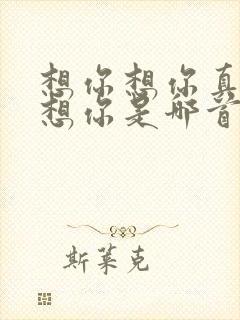 想你想你真
想你是那首
斯莱克